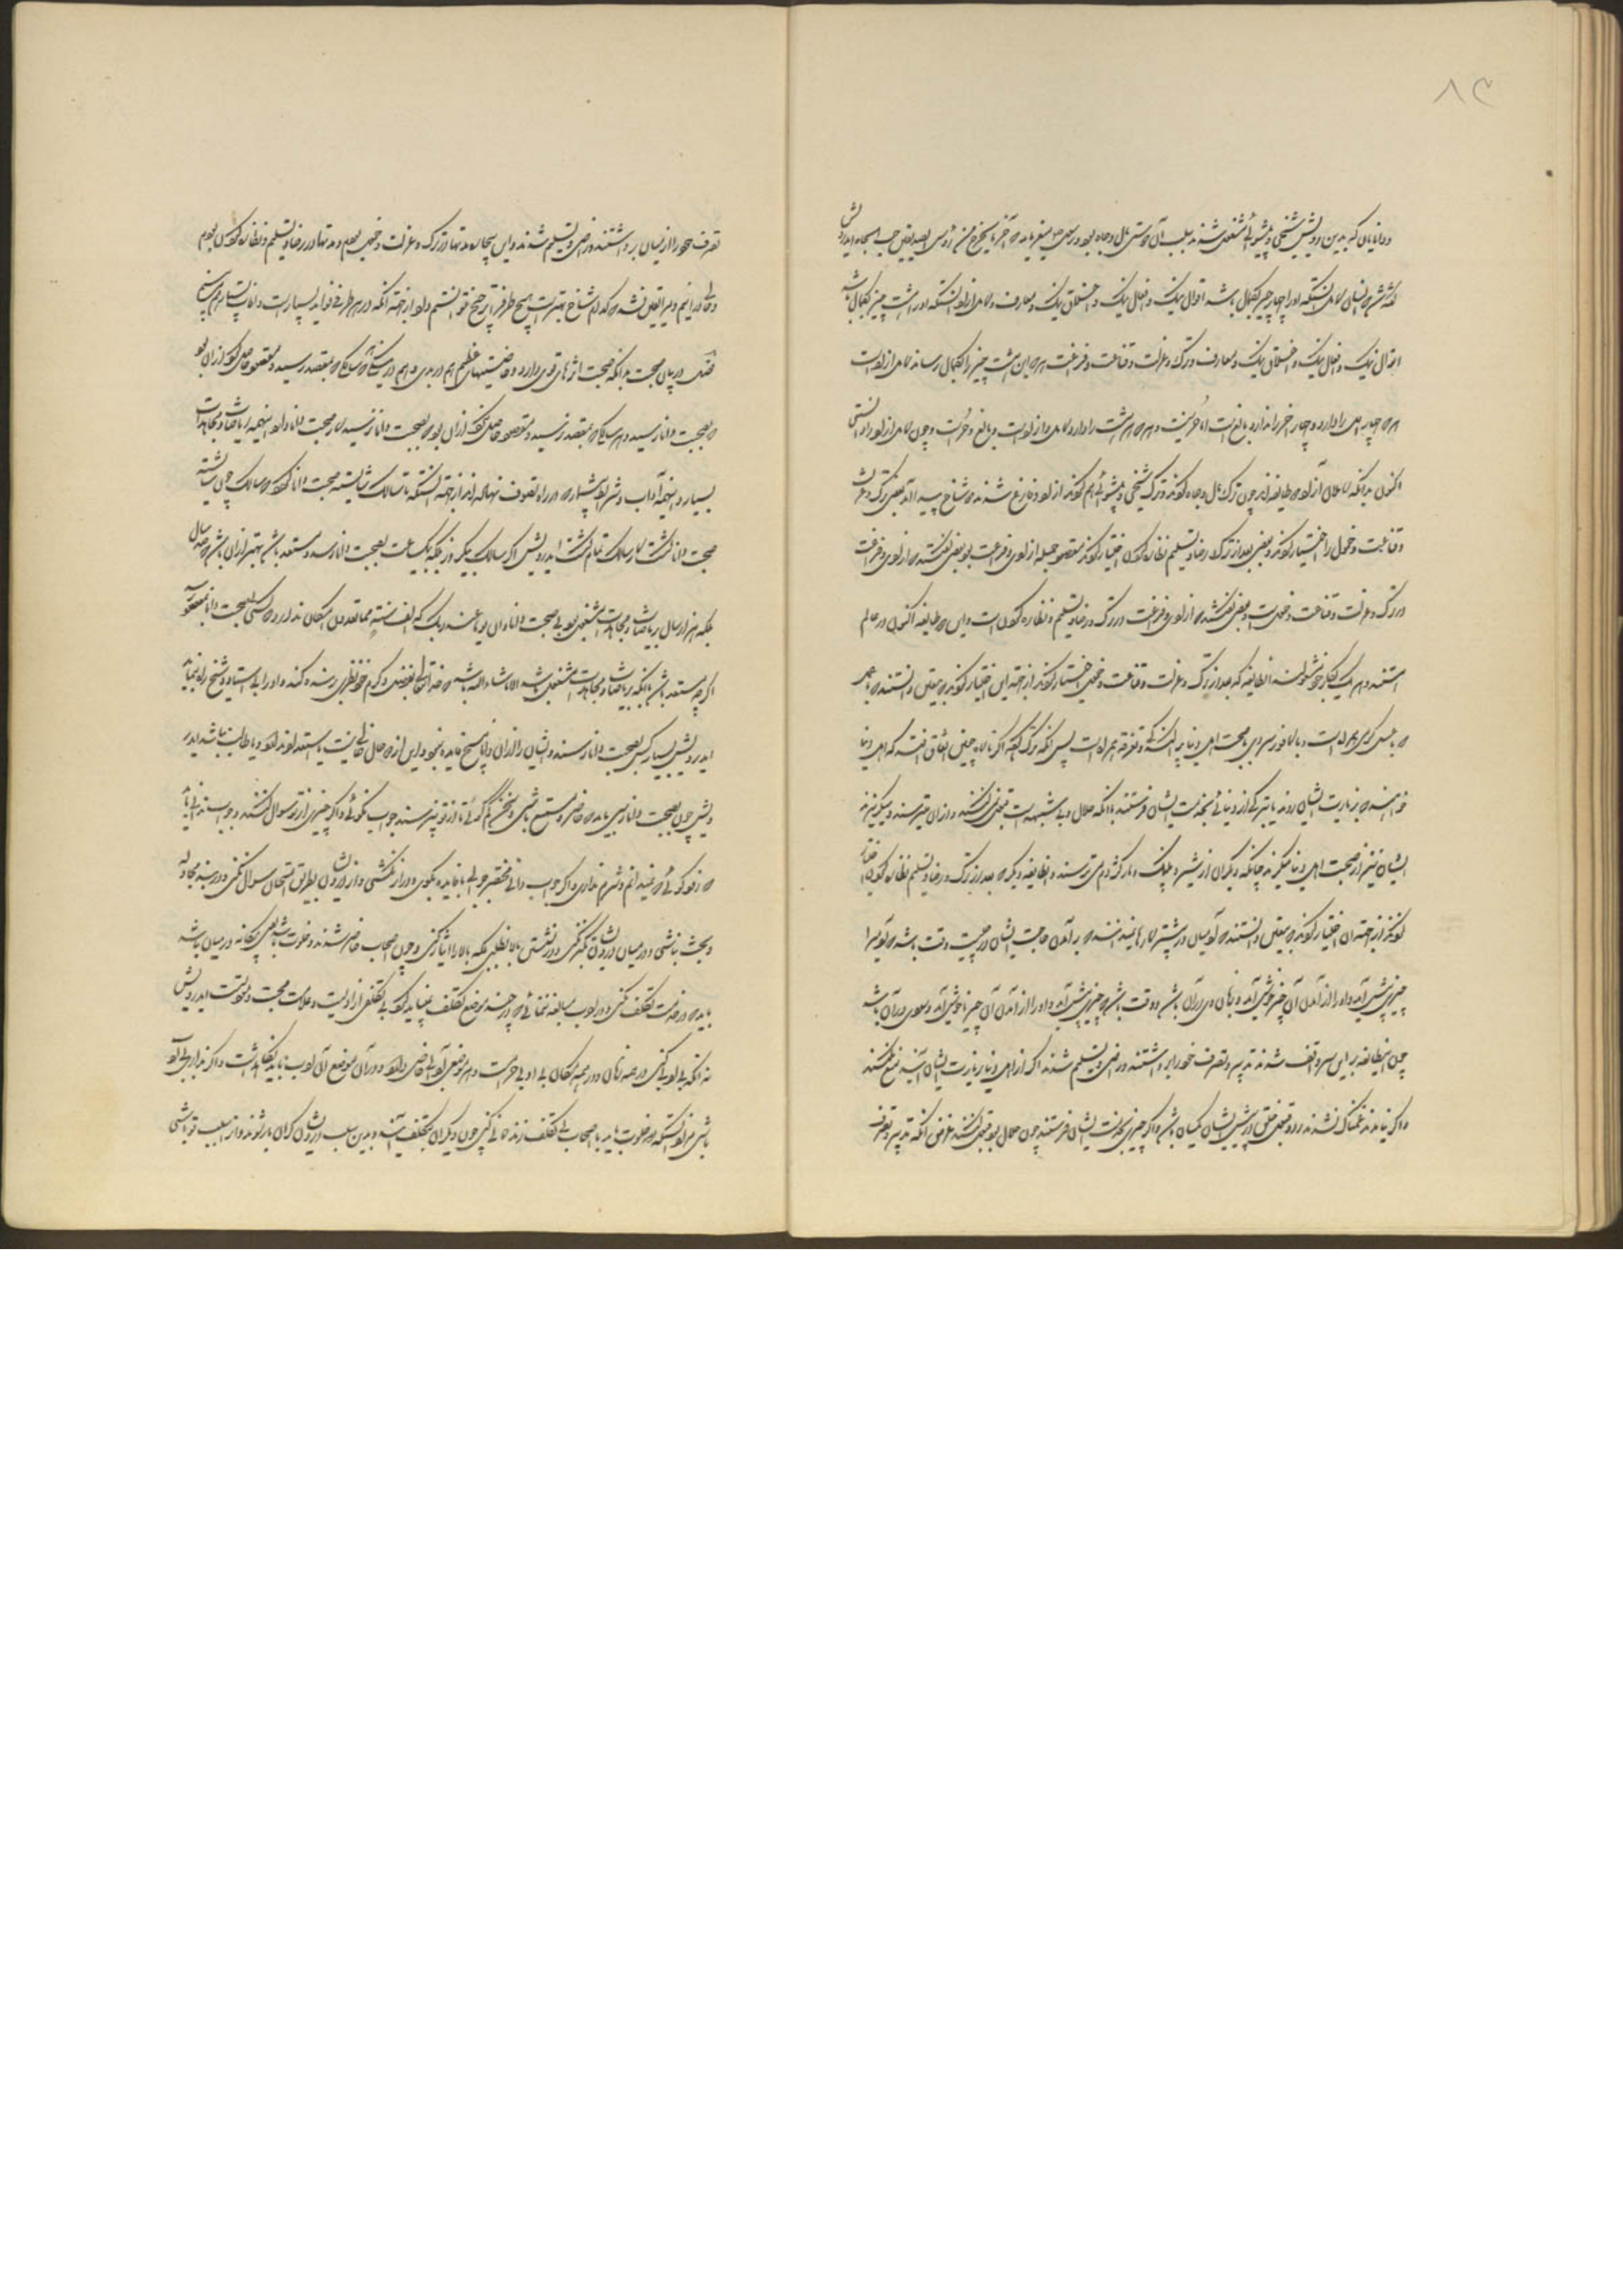 ۸۳
ودانایان که بدین درویش شیخی و پیشوائی مشغول شدند بسبب آن دوستی مال و جاه بود و رسول میفرماید که آخر ما یخرج من رؤس الصدیقین حب الجاه ایدرویش
گفته شد که انسان کامل آنستکه او را چهار چیز بکمال باشد اقوال نیک و افعال نیک و اخلاق نیک و معارف و کامل آزاد آنستکه او را هشت چیز بکمال باشد
اقوال نیک و افعال نیک و اخلاق نیک و معارف و ترک و عزلت و قناعت و فراغت هر که این هشت چیز را بکمال رساند کامل آزاد است
هر که چهار اول را دارد و چهار آخر را ندارد بالغ است اما حر نیست و هر که هر هشت را دارد کامل و آزاد است و بالغ و حر است و چون کامل آزاد را دانستی
اکنون بدانکه کاملان آزاد دو طایفه اند چون ترک مال و جاه کردند و ترک شیخی و پیشوائی هم کردند آزاد و فارغ شدند دو شاخ پیدا آمد بعضی ترک و عزلت
و قناعت و خمول را اختیار کردند و بعضی بعد از ترک رضا و تسلیم و نظاره کردن اختیار کردند مقصود جمله آزادی و فراغت بود بعضی گفتند که آزادی و فراغت
در ترک و عزلت و قناعت و خمول است و بعضی گفتند که آزادی و فراغت در ترک و رضا و تسلیم و نظاره کردن است و این دو طایفه اکنون در عالم
هستند و هر یک بکار خود مشغولند آن طایفه که بعد از ترک و عزلت و قناعت و خمول اختیار کردند از جهت این اختیار کردند که بیقین دانستند که
که با عسل گرمی همراه است و با کافور سردی با صحبت اهل دنیا پراکندگی و تفرقه همراه است پس آنکه ترک کنند اگر ناگاه چنین اتفاق افتد که اهل دنیا
خواهند که بزیارت ایشان روند یا تبرکی از دنیائی بخدمت ایشان فرستند با آنکه حلال و بی شبهت است قبول نکنند و از آن میترسند و میگریزند
ایشان نیز از صحبت اهل دنیا میگریزند چنانکه دیگران از شیر و پلنگ و مار و کژدم می ترسند و آن طایفه دیگر که بعد از ترک و رضا و تسلیم نظاره کردن اختیار
کردند از جهت آن اختیار کردند که بیقین دانستند که آدمیان در بیشتر کارها نمیدانند که برآمدن حاجت ایشان در چیست وقت باشد که آدمی را
چیزی پیش آید و او را از آمدن آن چیز خوش آید و زیان وی در آن باشد و وقت باشد که چیزی پیش آید و او را از آمدن آن چیز ناخوش آید و سود وی در آن باشد
چون اینطایفه بر این سر واقف شدند تدبیر و تصرف خود را برداشتند و راضی و تسلیم شدند اگر از اهل دنیا بزیارت ایشان آیند منع نکنند
و اگر نیایند غمناک نشوند رد و قبول خلق در پیش ایشان یکسان باشد و اگر چیزی بخدمت ایشان فرستند چون حلال بود قبول کنند غرض آنکه تدبیر و تصرف
تصرف خود را از میان برداشتند و راضی و تسلیم شدند و این بیچاره مدتها در ترک و عزلت و خمول بودم و مدتها در رضا و تسلیم و نظاره کردن بودم
و حالا در اینم و مرا یقین نشد که کدام شاخ بهتر است هیچ طرف را ترجیح نتوانستم داد از جهت آنکه در هر طرفی فواید بسیار است و آفات بسیار هم
فصل در بیان صحبت بدانکه صحبت اثرهای قوی دارد و خاصیتهای عظیم هم در بدی و هم در نیکی هر سالکی که بمقصد رسید و مقصود حاصل کرد از آن بود
که بصحبت دانا رسید و هر سالکی که بمقصد نرسید و مقصود حاصل نکرد از آن بود که بصحبت دانا نرسید کار صحبت دانا دارد اینهمه ریاضات و مجاهدات
بسیار و اینهمه آداب و شرایط بیشمار که در راه تصوف نهاده اند از جهت آنستکه تا سالک شایسته صحبت دانا گردد که سالک چون شایسته
صحبت دانا گشت کار سالک تمام گشت ایدرویش اگر سالک یکروز بلکه یکساعت بصحبت دانا رسد و مستعد باشد بهتر از آن باشد که صد سال
بلکه هزار سال بریاضات و مجاهدات مشغول بود بی صحبت دانا و ان یوما عند ربک کالف سنة مما تعدون امکان ندارد که کسی بیصحبت دانا بمقصود
اگرچه مستعد باشد و اگرچه بریاضات و مجاهدات مشغول باشد الا ما شاء الله باشد که خدایتعالی بفضل و کرم خود نظری کند و او را بی استاد و شیخ راه نماید
ایدرویش بسیار کس بصحبت دانا رسند و ایشان را از آن دانا هیچ فایده نبود و این از دو حال خالی نیست یا استعداد ندارد و یا طالب نباشد ایدر
ویش چون بصحبت دانا رسی باید که حاضر و مستمع باشی و سخن کم گوئی تا از تو چیزی نپرسند جواب نگوئی و اگر چیزی از تو سوال کنند و جواب ندانی باید
که زود گوئی که نمیدانم و شرم نداری و اگر جواب دانی مختصر جوابی با فایده بگوی و دراز نکشی و از درویشان بطریق امتحان سوال نکنی و در بند مجادله
و بحث نباشی و در میان درویشان تکبر نکنی و در نشستن بالا نطلبی بلکه بالا را ایثار کنی و چون اصحاب حاضر شوند و خلوت باشد یعنی بیگانه در میان نباشد
باید که در خدمت تکلف نکنی و در ادب مبالغه ننمائی که در چنین موضع تکلف نباید کرد بی تکلفی آزادیست و علامت محبت و مودت است ایدرویش
نه آنکه بی ادبی کنی در همه زمان و در همه مکان بی ادبی حرام است و هر موضعی را ادبی خاص دارد و در آن موضع آن ادب نباید نگذاشت و اگر نگذاری بی ادب
باشی مراد آنستکه در خلوت باید با اصحاب بی تکلف زندگانی کنی چون دیگران بتکلف آیند و بدین سبب درویشان گران بار شوند و از سبب تو باشی